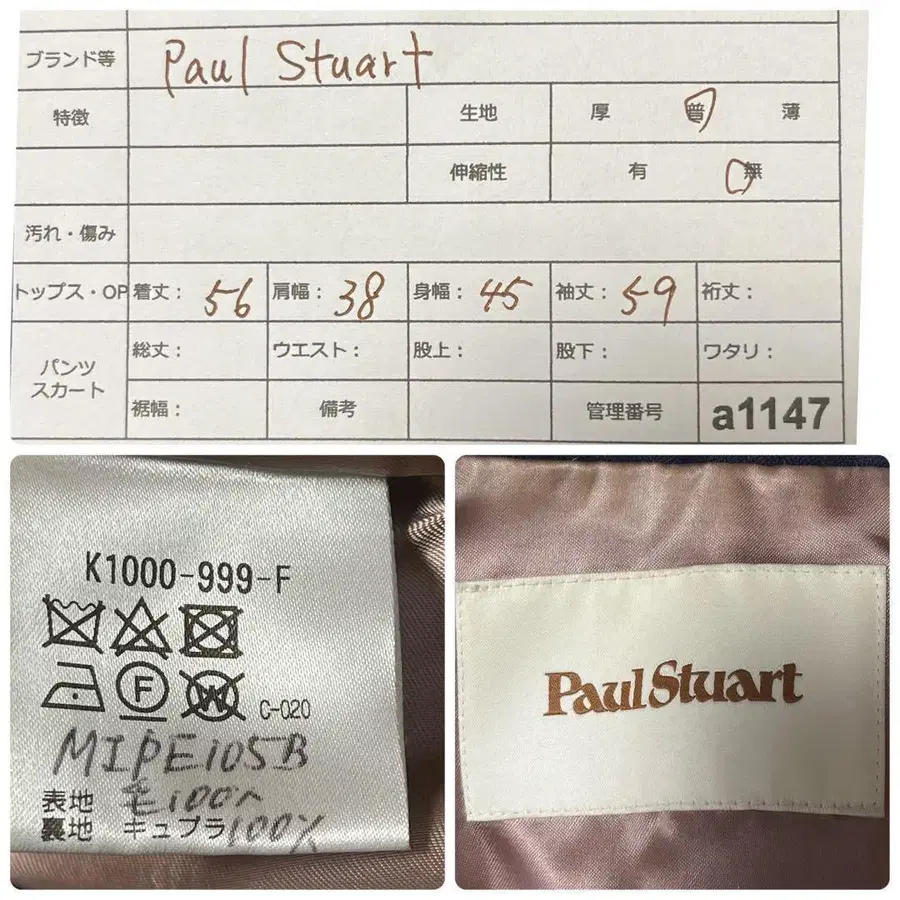 ブランド等 Paul Stuart
特徴 生地 厚 普 薄
伸縮性 有 無
汚れ・傷み
トップス・OP 着丈： 56 肩幅： 38 身幅： 45 袖丈： 59 裄丈：
パンツ スカート 総丈： ウエスト： 股上： 股下： ワタリ：
裾幅： 備考 管理番号 a1147
K1000-999-F
F W C-020
MIPE105B
表地 毛100%
裏地 キュプラ100%
Paul Stuart